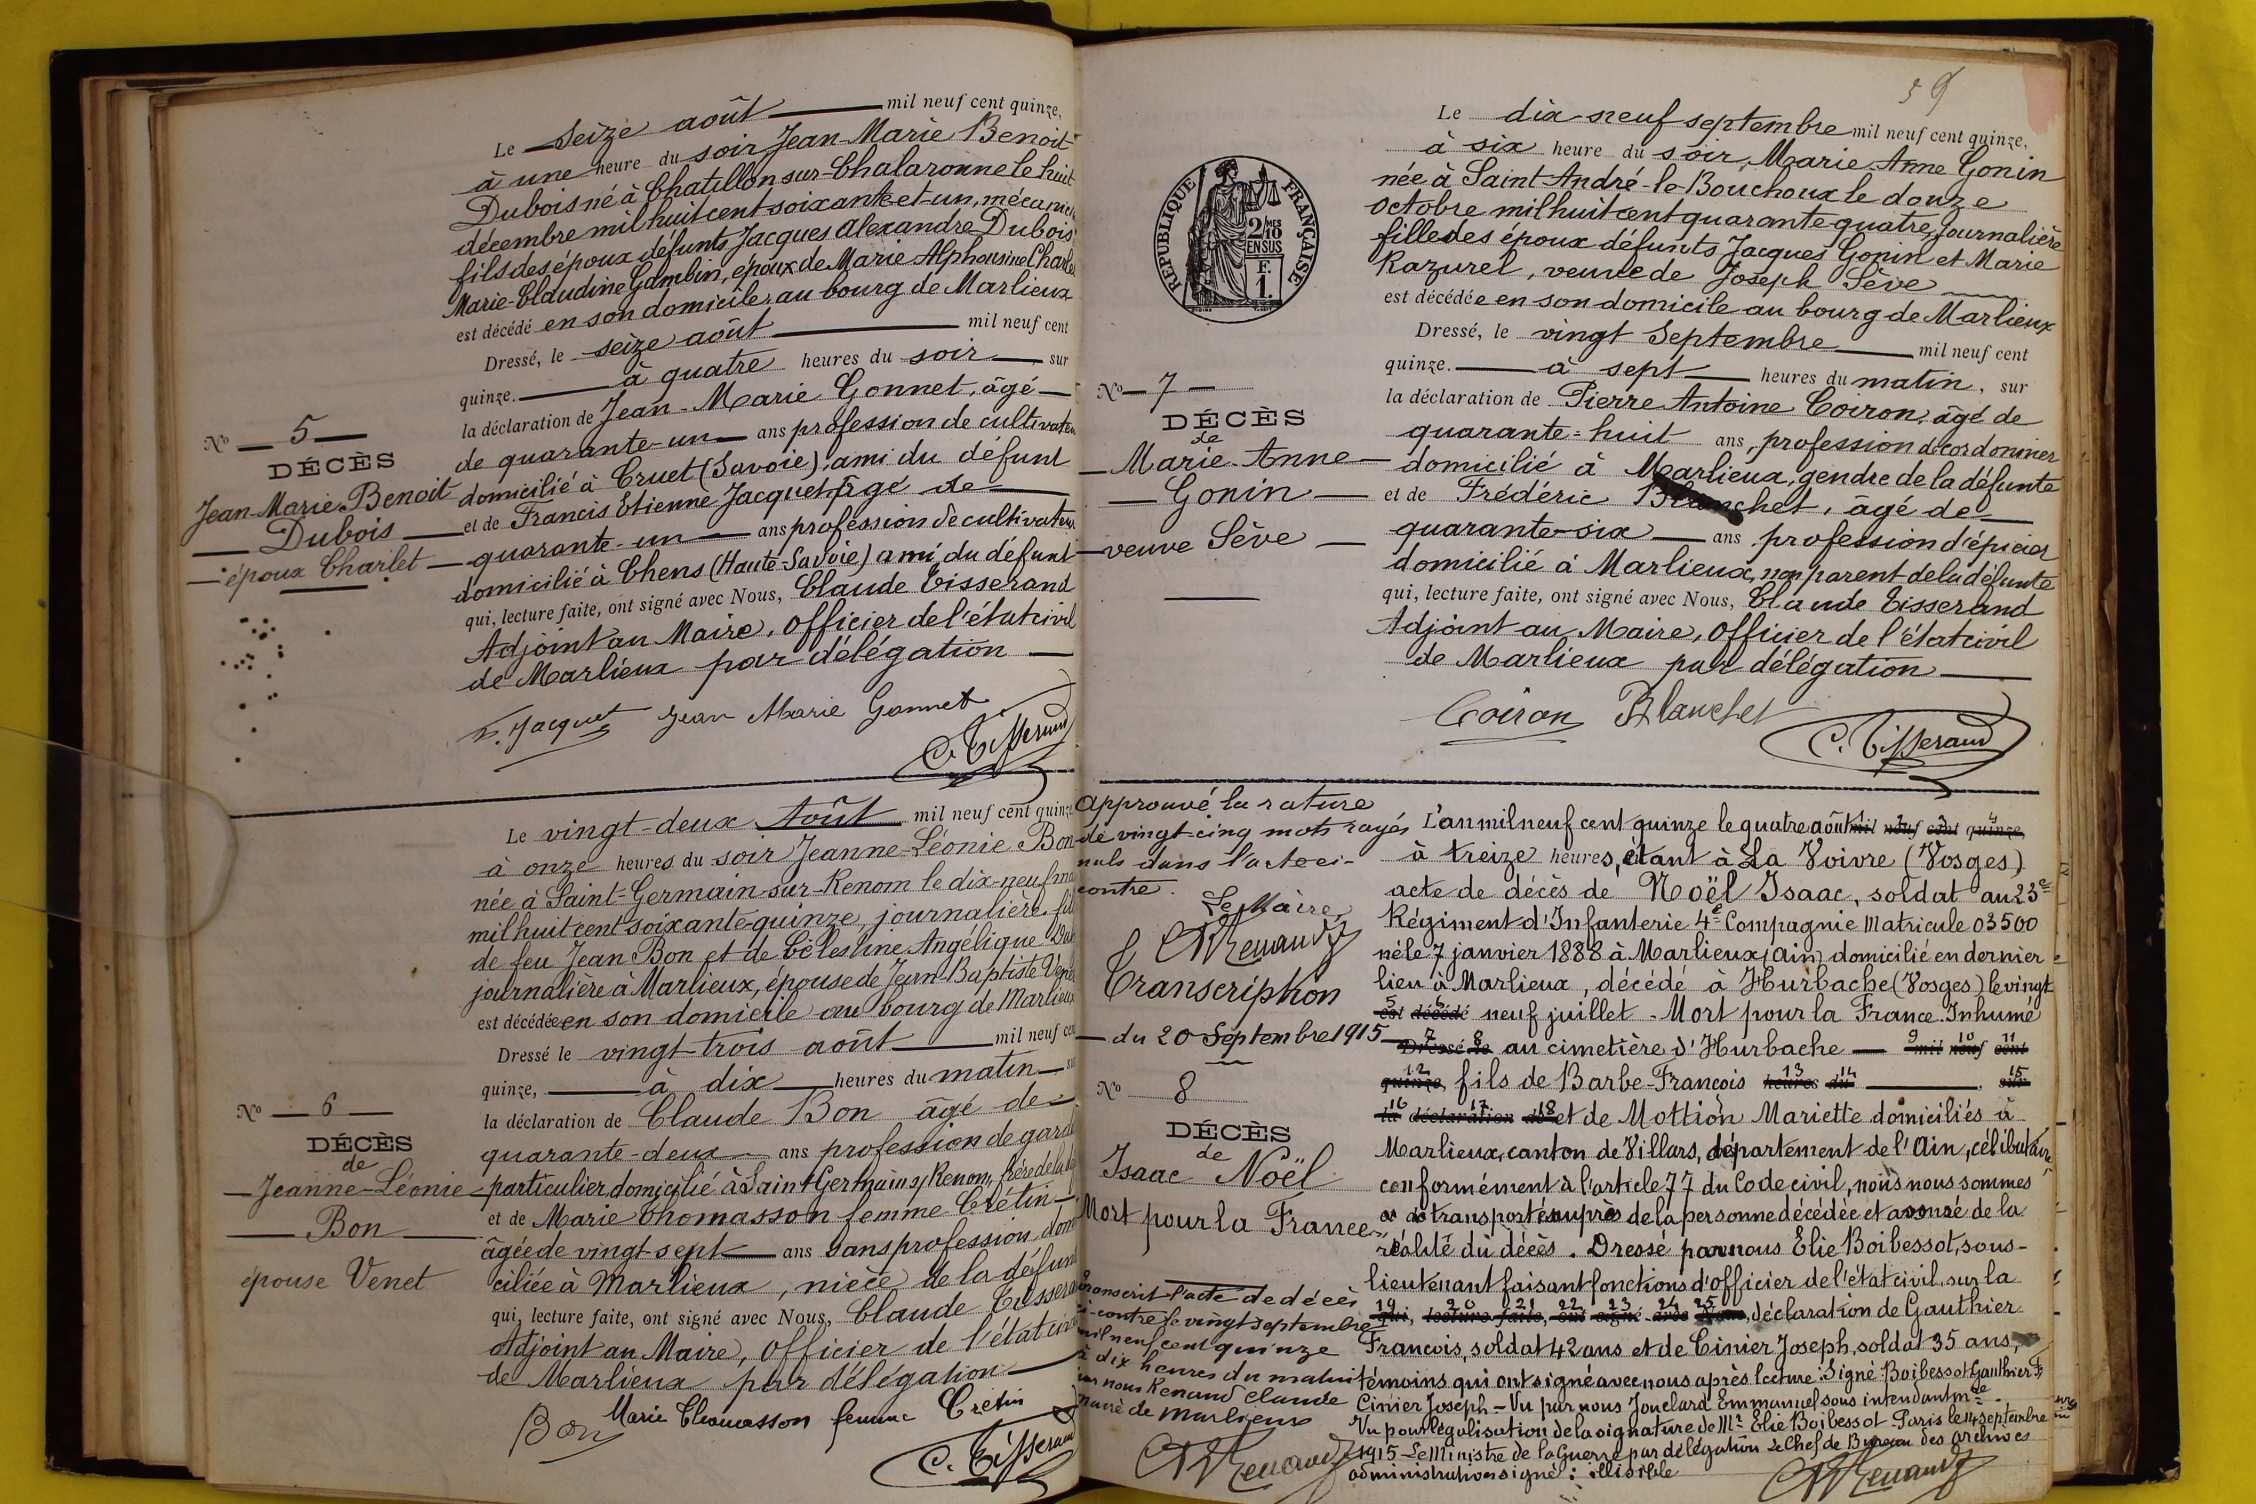 Le seize août mil neuf cent quinze,
à une heure du soir Jean-Marie Benoit
Dubois né à Chatillon-sur-Chalaronne le huit
décembre mil huit cent soixante-et-un, mécanicien
fils des époux défunts Jacques Alexandre Dubois
Marie-Claudine Gambin, époux de Marie Alphonsine Charlet
est décédé en son domicile au bourg de Marlieux
Dressé, le seize août mil neuf cent
quinze. à quatre heures du soir, sur
la déclaration de Jean-Marie Gonnet, âgé
de quarante-un ans profession de cultivateur
domicilié à Cruet (Savoie), ami du défunt
et de Francis Etienne Jacquet, âgé de
quarante-un ans profession de cultivateur
domicilié à Chens (Haute-Savoie) ami du défunt
qui, lecture faite, ont signé avec Nous, Claude Tisserand
Adjoint au Maire, Officier de l'état civil
de Marlieux par délégation
F. Jacquet Jean Marie Gonnet
C. Tisserand
No 5
DÉCÈS
Jean-Marie Benoit
Dubois
époux Charlet
Le vingt-deux Août mil neuf cent quinze
à onze heures du soir Jeanne-Léonie Bon
née à Saint-Germain-sur-Renom le dix-neuf
mil huit cent soixante-quinze, journalière
de feu Jean Bon et de Célestine Angélique
journalière à Marlieux, épouse de Jean-Baptiste Venet
est décédée en son domicile au bourg de Marlieux
Dressé le vingt-trois août mil neuf cent
quinze, à dix heures du matin
la déclaration de Claude Bon âgé de
quarante-deux ans profession de garde
particulier, domicilié à Saint Germain s/ Renom, frère de la
et de Marie Thomasson femme Crétin
âgée de vingt-sept ans sans profession, domi
ciliée à Marlieux, nièce de la défunte
qui, lecture faite, ont signé avec Nous, Claude Tisserand
Adjoint au Maire, Officier de l'état civil
de Marlieux par délégation
Bon Marie Thomasson femme Cretin
C. Tisserand
No 6
DÉCÈS
de
Jeanne-Léonie
Bon
épouse Venet
59
RÉPUBLIQUE FRANÇAISE
2/10 MES
EN SUS
F.
1.
Le dix-neuf septembre mil neuf cent quinze,
à six heure du soir, Marie-Anne Gonin
née à Saint-André-le-Bouchoux le douze
octobre mil huit cent quarante-quatre, journalière
fille des époux défunts Jacques Gonin et Marie
Razurel, veuve de Joseph Sève
est décédée en son domicile au bourg de Marlieux
Dressé, le vingt Septembre mil neuf cent
quinze. à sept heures du matin, sur
la déclaration de Pierre Antoine Coiron, âgé de
quarante-huit ans, profession de cordonnier
domicilié à Marlieux, gendre de la défunte
et de Frédéric Blanchet, âgé de
quarante-six ans profession d'épicier
domicilié à Marlieux, non parent de la défunte
qui, lecture faite, ont signé avec Nous, Claude Tisserand
Adjoint au Maire, Officier de l'état civil
de Marlieux par délégation
Coiron Blanchet
C. Tisserand
No 7
DÉCÈS
de
Marie-Anne
Gonin
veuve Sève
Approuvé la rature
de vingt-cinq mots rayés
nuls dans l'acte ci-
contre.
Le Maire
Renaud
Transcription
du 20 Septembre 1915
No 8
DÉCÈS
de
Isaac Noël
Mort pour la France
Transcrit l'acte de décès
ci-contre le vingt septembre
mil neuf cent quinze
à dix heures du matin
par nous Renaud Claude
maire de Marlieux
Renaud
L'an mil neuf cent quinze le quatre août mil neuf cent quinze,
à treize heures, étant à La Voivre (Vosges)
acte de décès de Noël Isaac, soldat au 23e
Régiment d'Infanterie 4e Compagnie Matricule 03500
né le 7 janvier 1888 à Marlieux (Ain) domicilié en dernier
lieu à Marlieux, décédé à Hurbache (Vosges) le vingt
5 est 6 décédé neuf juillet - Mort pour la France. Inhumé
7 Dressé 8 le au cimetière d'Hurbache 9 mil 10 neuf 11 cent
12 quinze, fils de Barbe-François 13 heures 14 du 15 sur
16 la 17 déclaration 18 de et de Mottion Mariette domiciliés à
Marlieux, canton de Villars, département de l'Ain, célibataire,
conformément à l'article 77 du Code civil, nous nous sommes
transporté auprès de la personne décédée et assuré de la
réalité du décès. Dressé par nous Elie Boibessot, sous-
lieutenant faisant fonctions d'officier de l'état civil, sur la
19 qui, 20 lecture 21 faite, 22 ont 23 signé 24 avec 25 Nous, déclaration de Gauthier
François, soldat 42 ans et de Cinier Joseph, soldat 35 ans,
témoins qui ont signé avec nous après lecture. Signé: Boibessot Gauthier F,
Cinier Joseph - Vu par nous Jouclard Emmanuel sous intendant mre
Vu pour légalisation de la signature de Mr Elie Boibessot - Paris le 14 septembre
1915 - Le Ministre de la Guerre par délégation Le Chef de Bureau des archives
administratives signé: illisible
Renaud